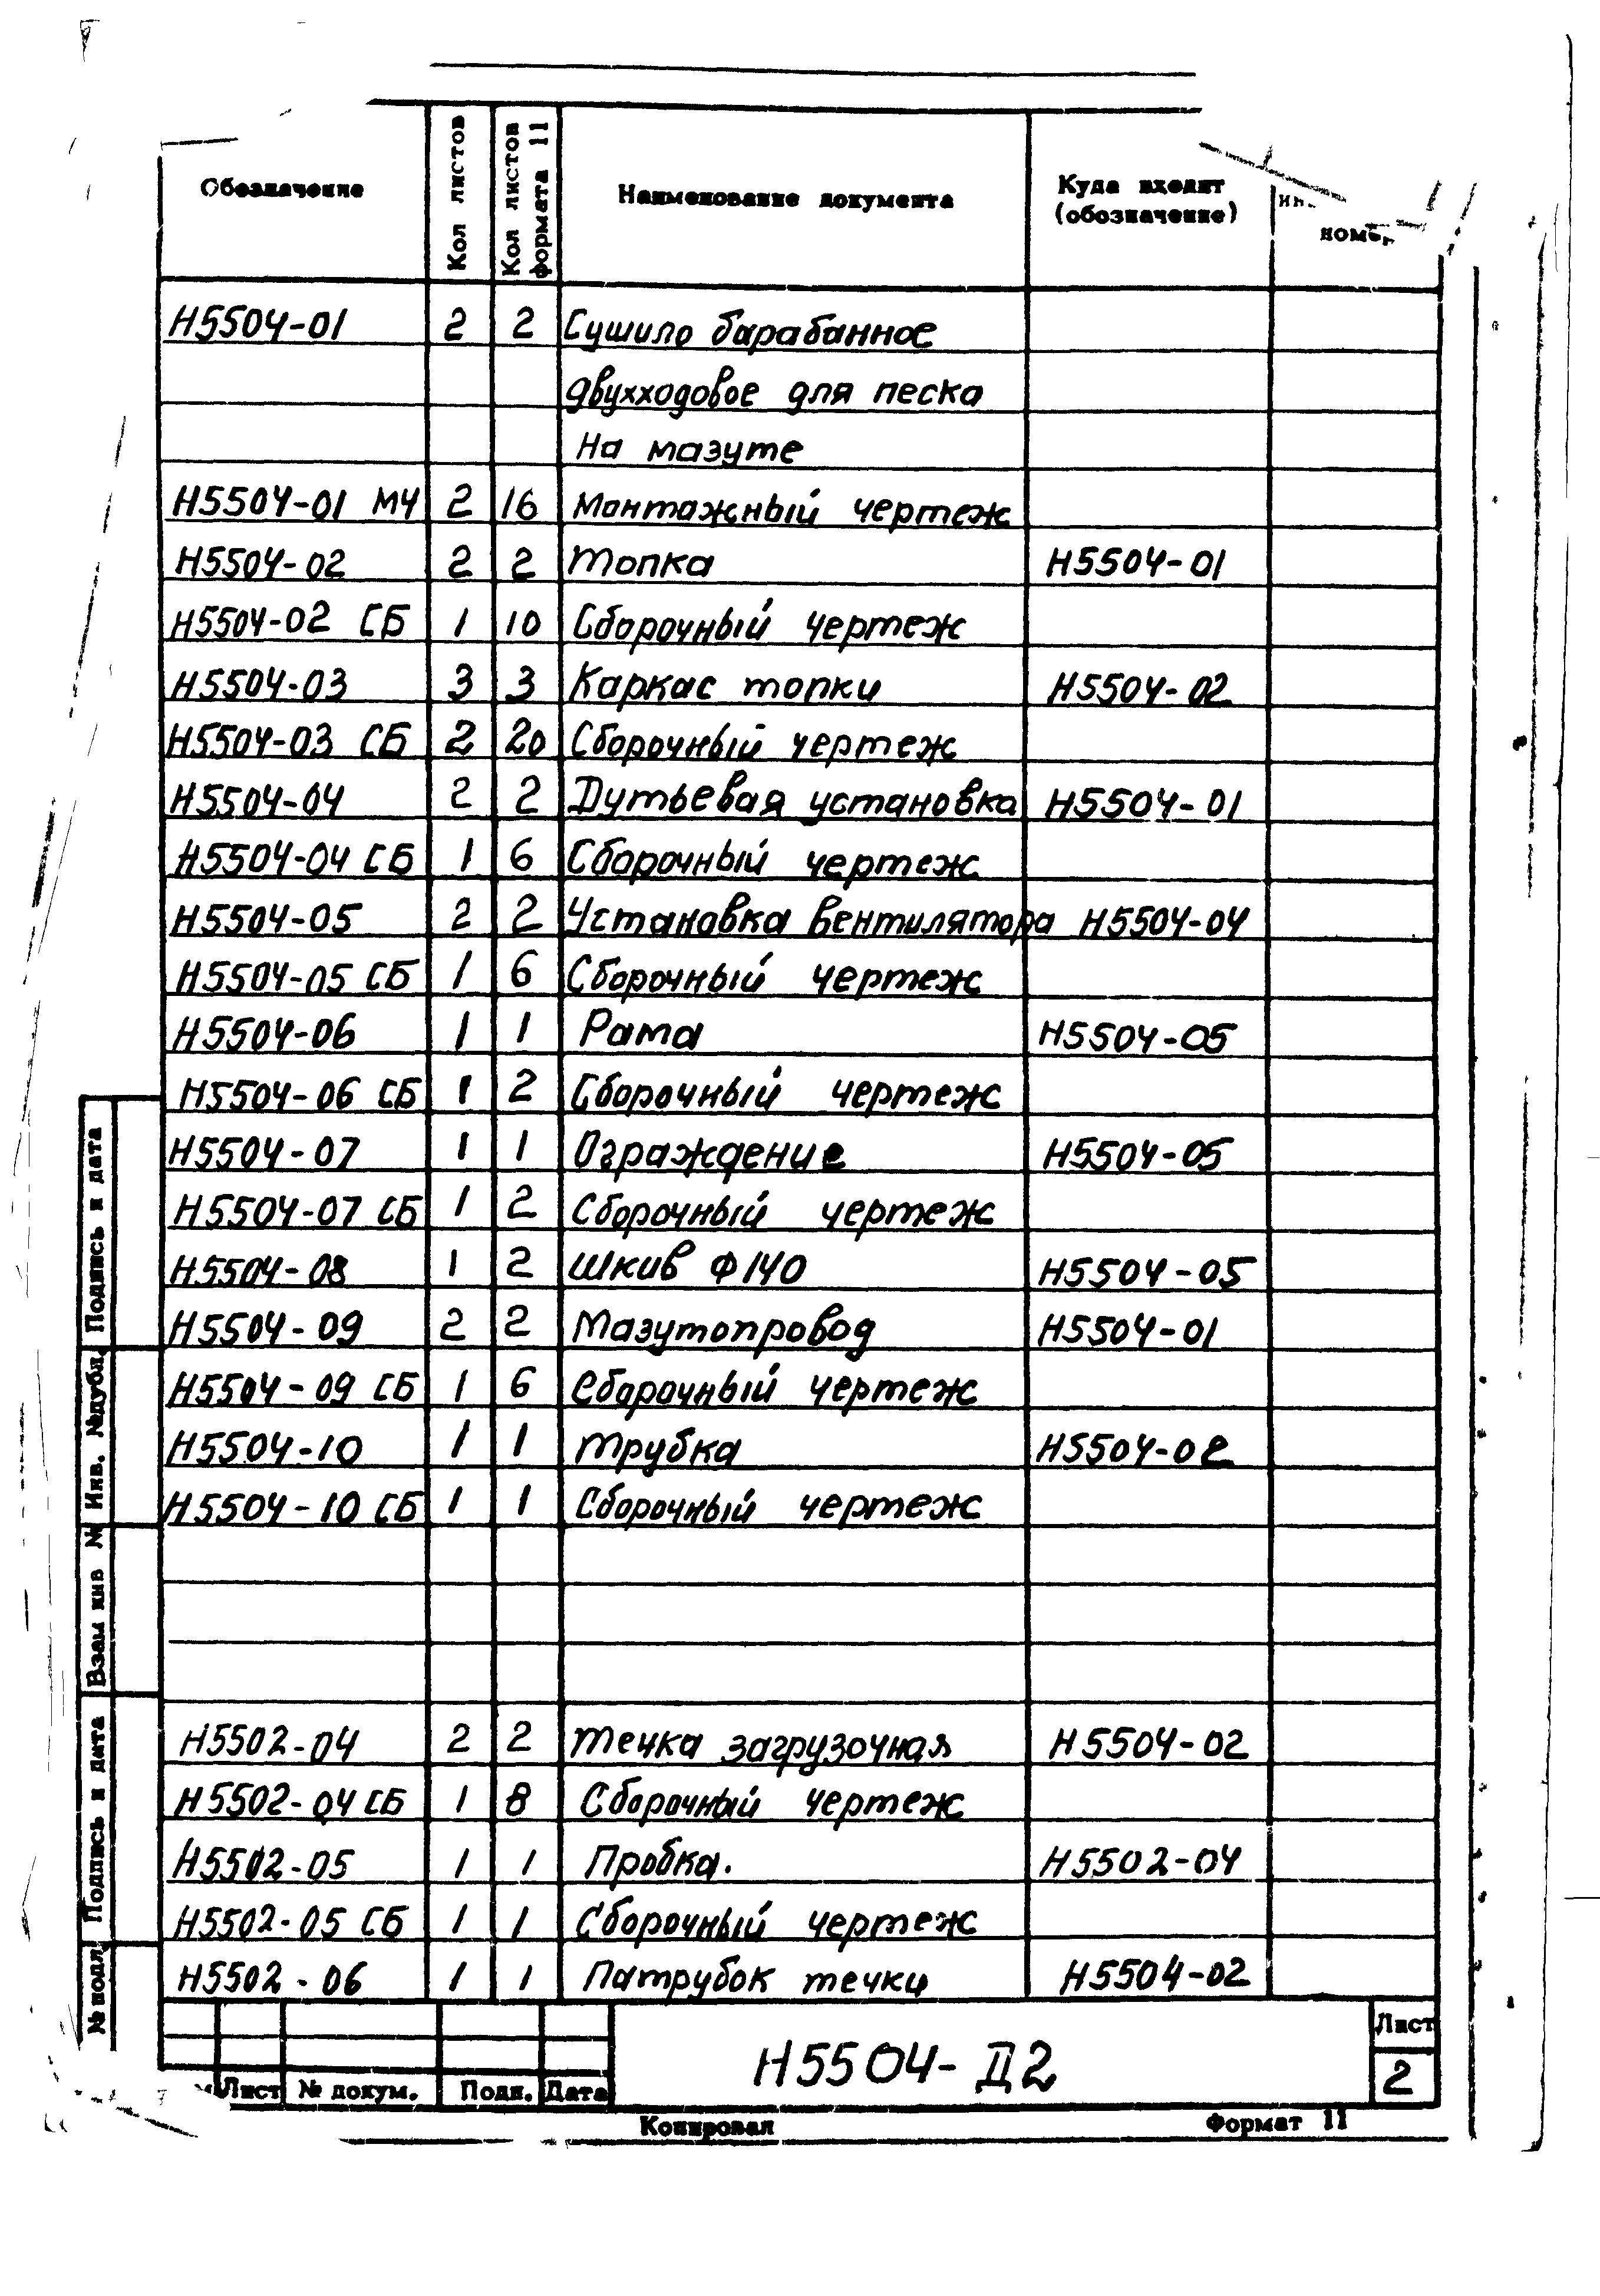 Обозначение Кол листов Кол листов формата 11 Наименование документа Куда входит (обозначение)
Н5504-01 2 2 Сушило барабанное
двухходовое для песка
на мазуте
Н5504-01 МЧ 2 16 Монтажный чертеж
Н5504-02 2 2 Топка Н5504-01
Н5504-02 СБ 1 10 Сборочный чертеж
Н5504-03 3 3 Каркас топки Н5504-02
Н5504-03 СБ 2 20 Сборочный чертеж
Н5504-04 2 2 Дутьевая установка Н5504-01
Н5504-04 СБ 1 6 Сборочный чертеж
Н5504-05 2 2 Установка вентилятора Н5504-04
Н5504-05 СБ 1 6 Сборочный чертеж
Н5504-06 1 1 Рама Н5504-05
Н5504-06 СБ 1 2 Сборочный чертеж
Н5504-07 1 1 Ограждение Н5504-05
Н5504-07 СБ 1 2 Сборочный чертеж
Н5504-08 1 2 Шкив Ф140 Н5504-05
Н5504-09 2 2 Мазутопровод Н5504-01
Н5504-09 СБ 1 6 Сборочный чертеж
Н5504-10 1 1 Трубка Н5504-02
Н5504-10 СБ 1 1 Сборочный чертеж
Н5502-04 2 2 Течка загрузочная Н5504-02
Н5502-04 СБ 1 8 Сборочный чертеж
Н5502-05 1 1 Пробка. Н5502-04
Н5502-05 СБ 1 1 Сборочный чертеж
Н5502-06 1 1 Патрубок течки Н5504-02
Подпись и дата
Инв. №дубл.
Взам инв №
Подпись и дата
№ подл.
Лист № докум. Подп. Дата
Н5504-Д2
Лист
2
Копировал Формат 11